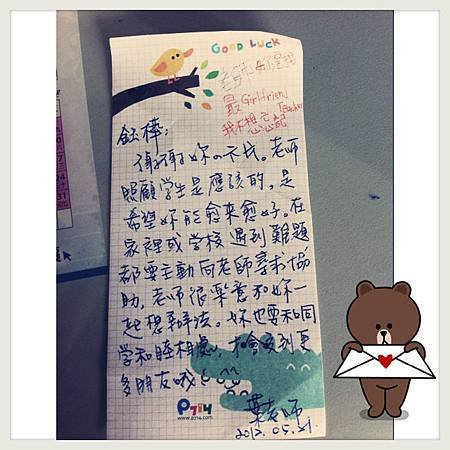 GOOD LUCK
老師妳是我
最Girlfriend
我不想忘記
Teacher
鈺棒：
謝謝妳的卡片。老師
照顧學生是應該的,是
希望妳能愈來愈好。在
家裡或學校遇到難題
都要主動向老師尋求協
助,老師很樂意和妳一
起想辦法。妳也要和同
學和睦相處,才會交到更
多朋友哦!
葉老師
2013.05.21.
P714
www.p714.com